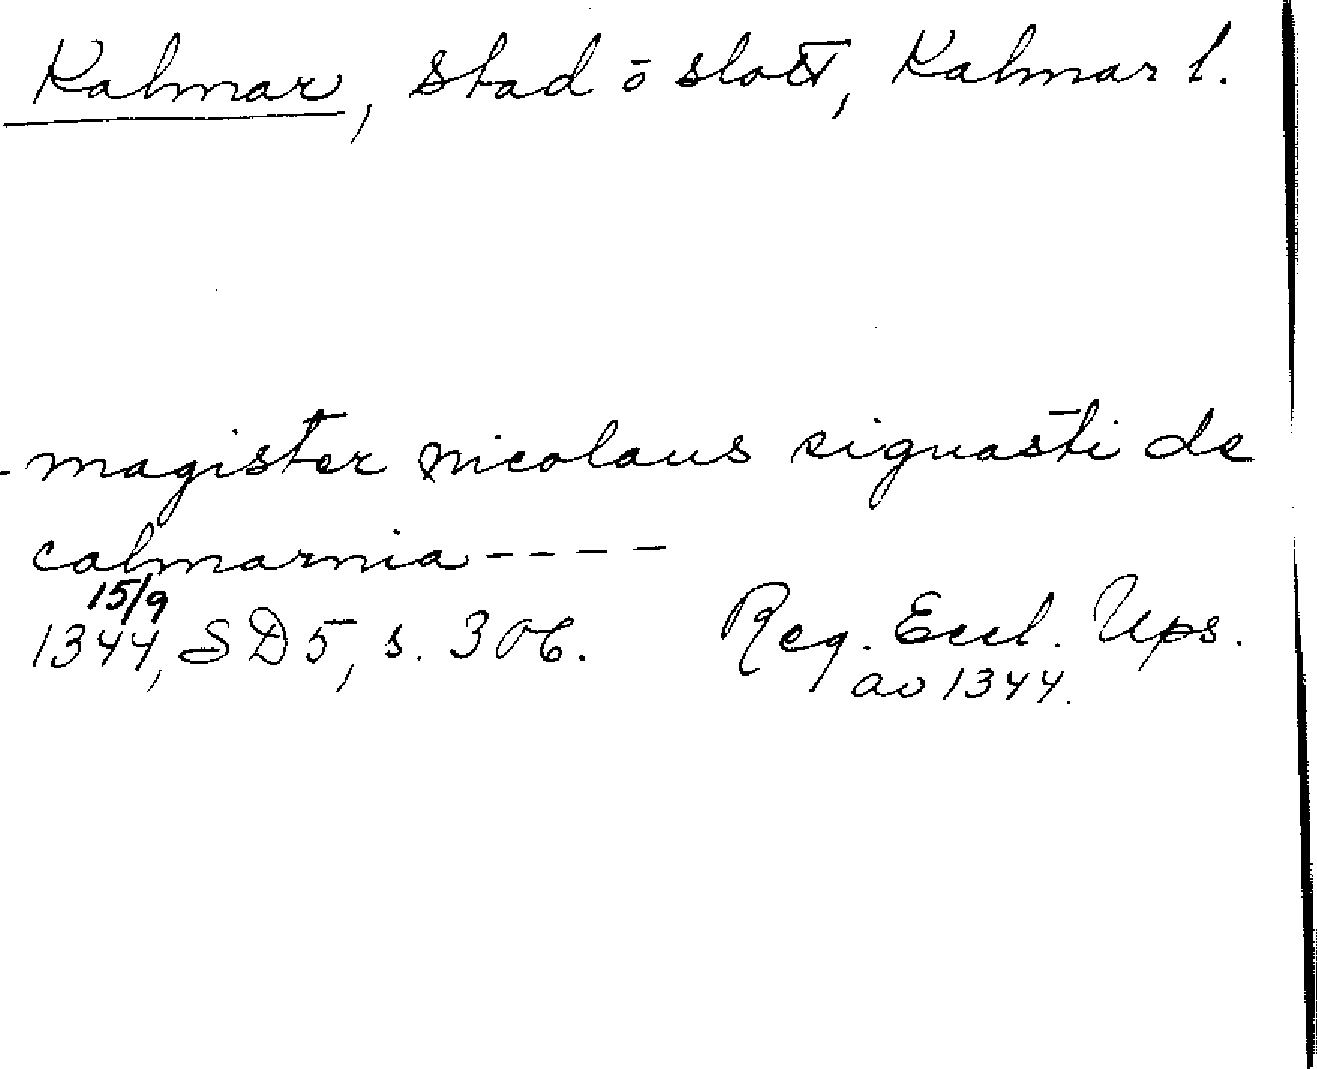 Kalmar, stad o slott, Kalmar l.
- magister nicolaus siguasti de
calmarnia ----
15/9
1344, SD5, s. 306. Reg. Eccl. Ups.
av 1344.